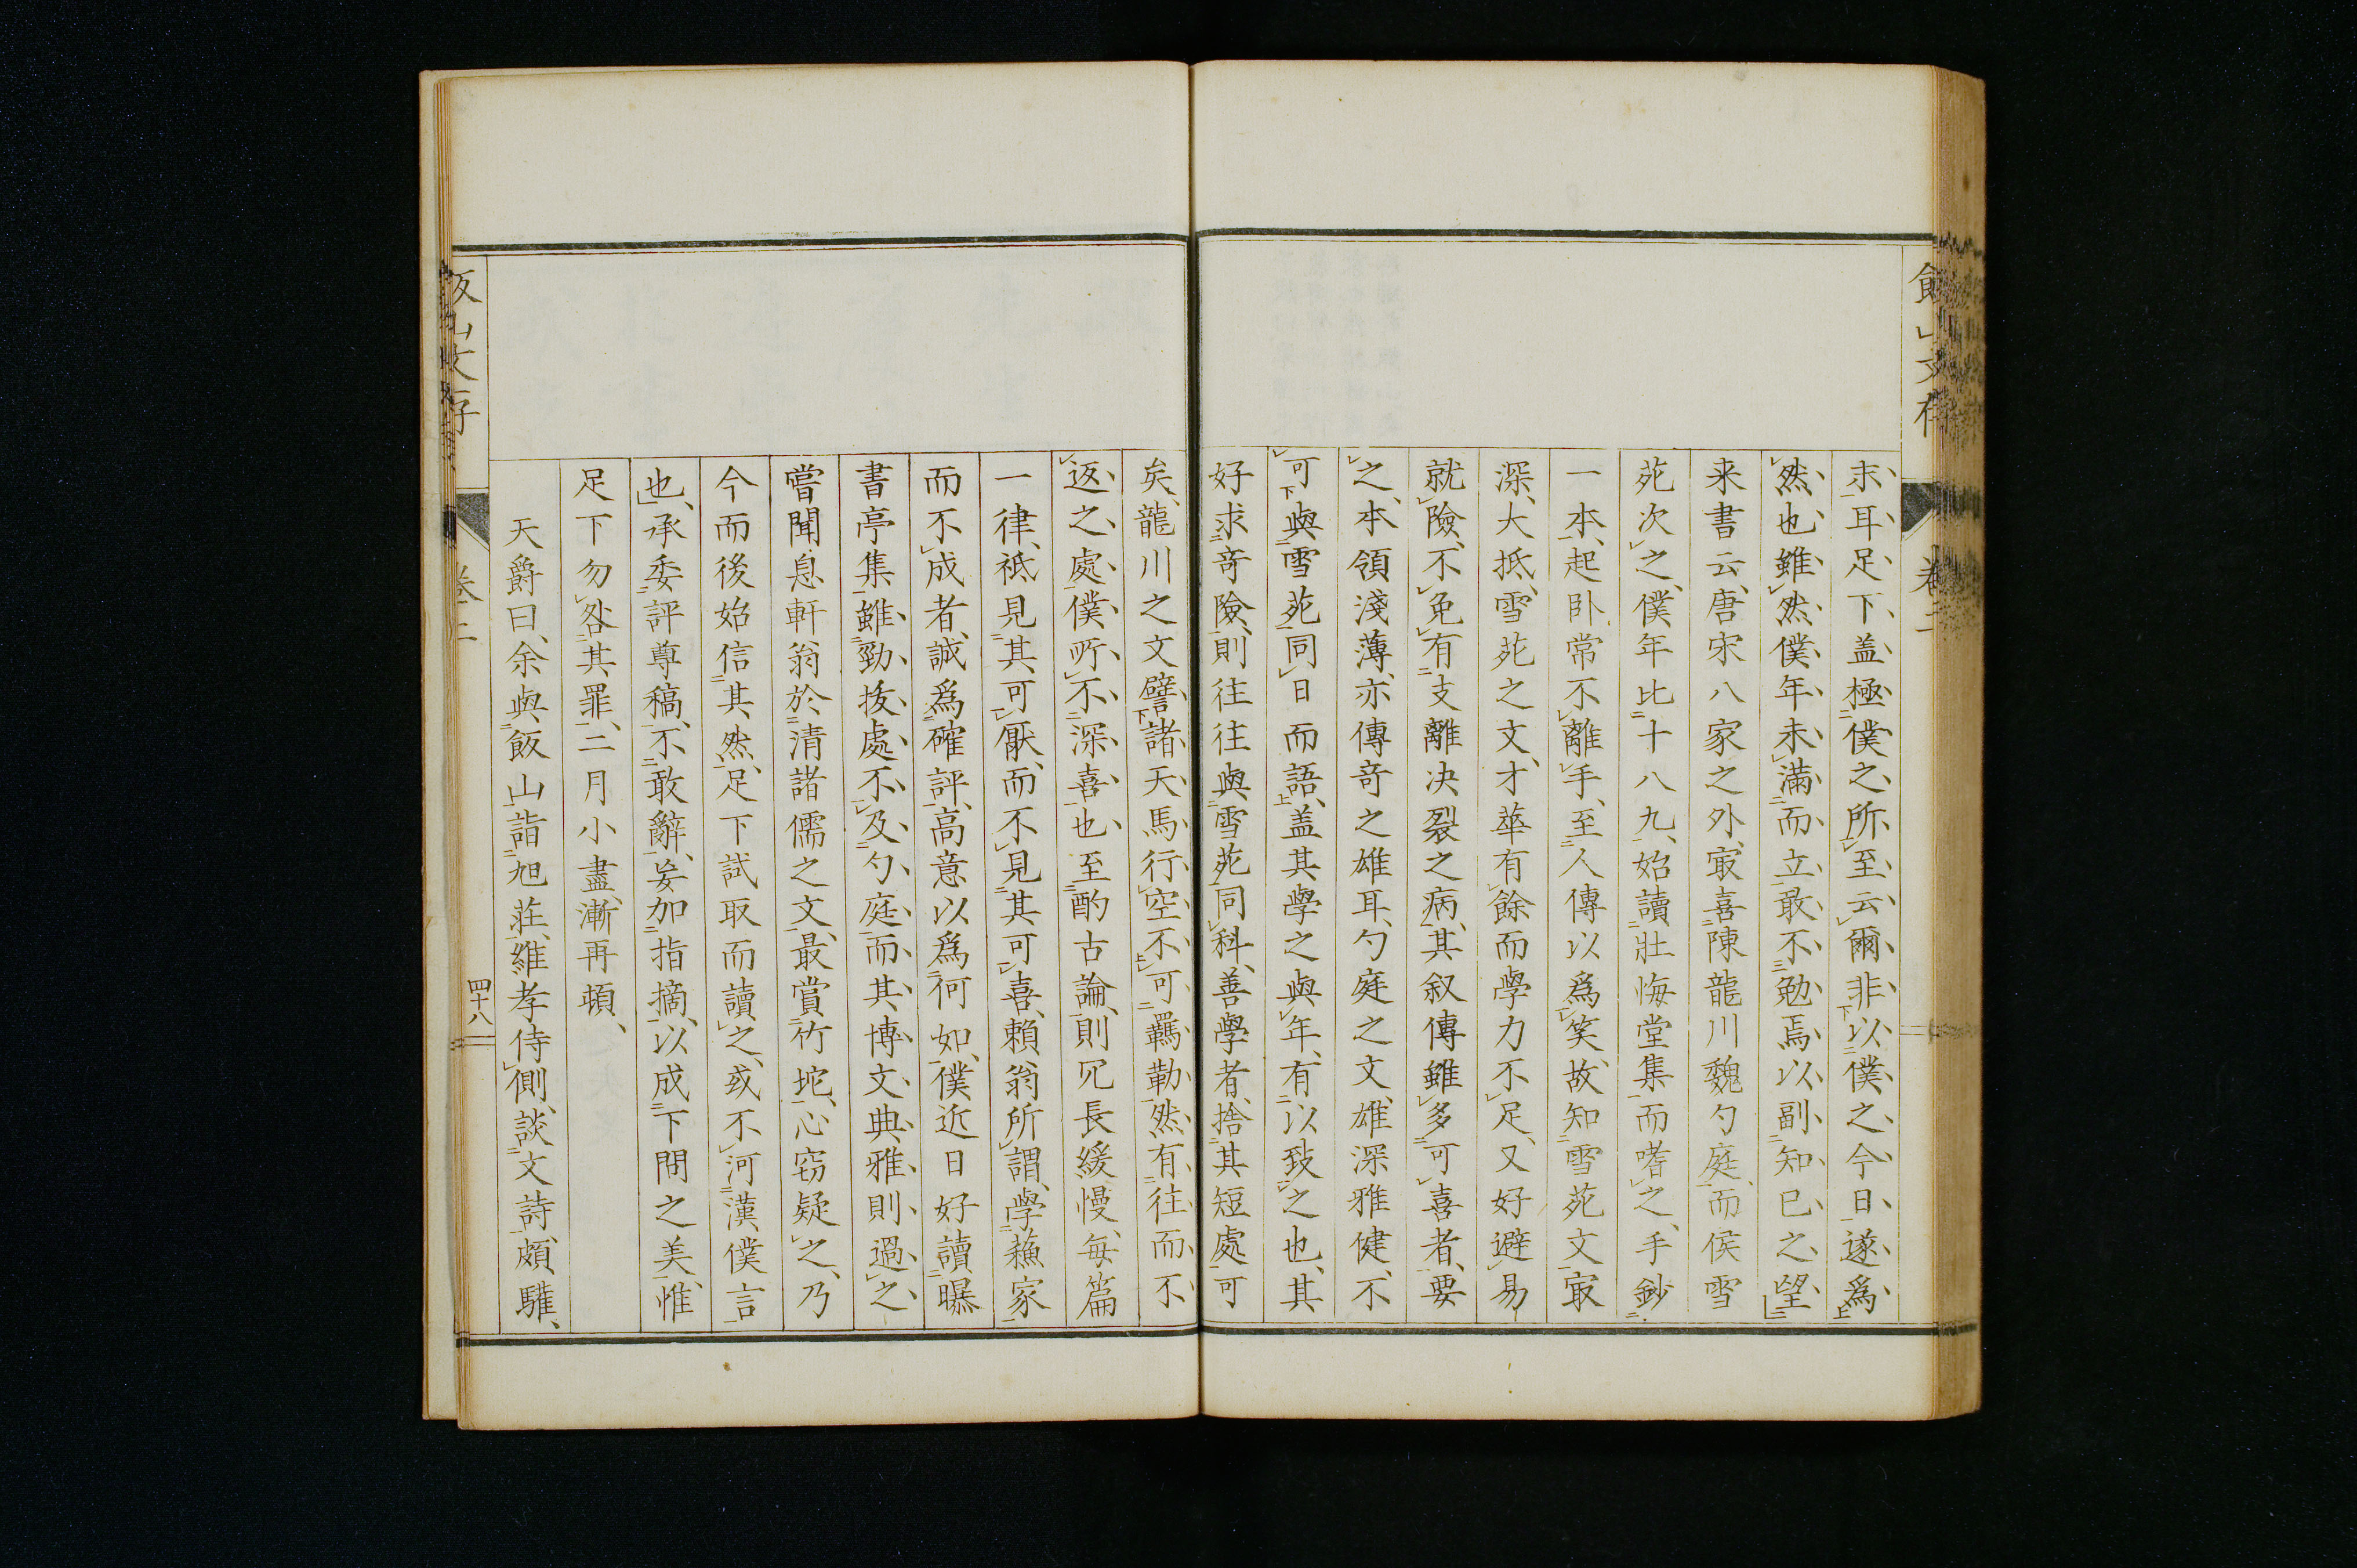 飯山文存
卷二
末、耳、足下、盖極僕之所至云爾、非以僕之今日遂爲
然也、雖然僕年未滿而立、敢不勉焉以副知己之望、
来書云、唐宋八家之外、㝡喜陳龍川魏勺庭、而侯雪
苑次之、僕年比十八九、始讀壯悔堂集而嗜之、手鈔
一本、起卧常不離手、至人傳以爲笑、故知雪苑文㝡
深、大抵雪苑之文、才華有餘而學力不足、又好避易
就險、不免有支離决裂之病、其叙傳雖多可喜者、要
之、本領淺薄、亦傳奇之雄耳、勺庭之文、雄深雅健、不
可與雪苑同日而語、盖其學之與年、有以致之也、其
好求竒險、則往往與雪苑同科、善學者、捨其短處可
矣、龍川之文、譬諸天馬行空、不可羈勒、然有往而不
返之處、僕所不深喜也、至酌古論、則冗長緩慢、每篇
一律、祗見其可厭、而不見其可喜、賴翁所謂、學蘓家
而不成者、誠爲確評、高意以爲何如、僕近日好讀曝
書亭集、雖勁拔處不及勺庭、而其博文典雅、則過之、
嘗聞息軒翁於清諸儒之文、最賞竹垞、心窃疑之、乃
今而後始信其然、足下試取而讀之、或不河漢僕言
也、承委評尊稿、不敢辭、妄加指摘、以成下問之美、惟
足下勿咎其罪、二月小盡、漸再頓、
天爵曰、余與飯山詣旭莊、維孝侍側、談文詩、頗驩、
飯山文存
卷二
四十八